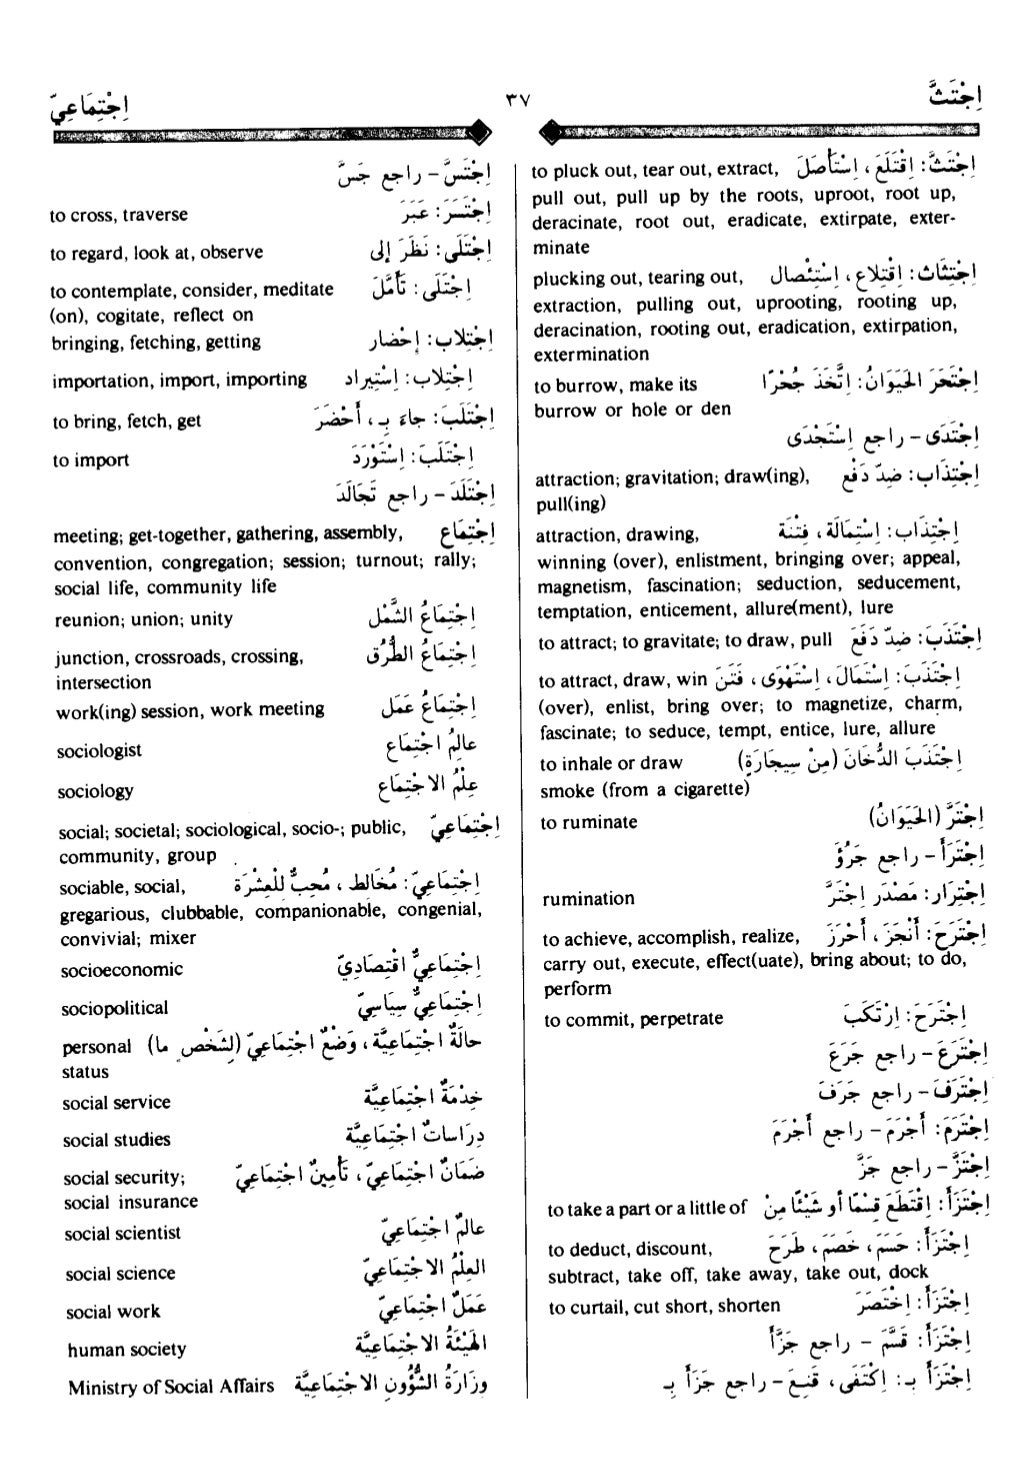 اِجْتَثَّ
٣٧
اِجْتِمَاعِيّ
اِجْتَثَّ: اِقْتَلَعَ، اِسْتَأْصَلَ to pluck out, tear out, extract,
pull out, pull up by the roots, uproot, root up,
deracinate, root out, eradicate, extirpate, exter-
minate
اِجْتِثَاث: اِقْتِلاع، اِسْتِئْصال plucking out, tearing out,
extraction, pulling out, uprooting, rooting up,
deracination, rooting out, eradication, extirpation,
extermination
اِجْتَحَرَ الحَيَوَانُ: اِتَّخَذَ جُحْرًا to burrow, make its
burrow or hole or den
اِجْتَدَى - راجع اِسْتَجْدَى
اِجْتِذَاب: ضِدّ دَفْع attraction; gravitation; draw(ing),
pull(ing)
اِجْتِذَاب: اِسْتِمَالَة، فِتْنَة attraction, drawing,
winning (over), enlistment, bringing over; appeal,
magnetism, fascination; seduction, seducement,
temptation, enticement, allure(ment), lure
اِجْتَذَبَ: ضِدّ دَفَعَ to attract; to gravitate; to draw, pull
اِجْتَذَبَ: اِسْتَمَالَ، اِسْتَهْوَى، فَتَنَ to attract, draw, win
(over), enlist, bring over; to magnetize, charm,
fascinate; to seduce, tempt, entice, lure, allure
اِجْتَذَبَ الدُّخَانَ (مِنْ سِيجَارَةٍ) to inhale or draw
smoke (from a cigarette)
اِجْتَرَّ (الحَيَوَانُ) to ruminate
اِجْتَرَأَ - راجع جَرُؤَ
اِجْتِرَار: مَصْدَر اِجْتَرَّ rumination
اِجْتَرَحَ: أَنْجَزَ، أَحْرَزَ to achieve, accomplish, realize,
carry out, execute, effect(uate), bring about; to do,
perform
اِجْتَرَحَ: اِرْتَكَبَ to commit, perpetrate
اِجْتَرَعَ - راجع جَرَعَ
اِجْتَرَفَ - راجع جَرَفَ
اِجْتَرَمَ: أَجْرَمَ - راجع أَجْرَمَ
اِجْتَزَّ - راجع جَزَّ
اِجْتَزَأَ: اِقْتَطَعَ قِسْمًا أو شَيْئًا مِنْ to take a part or a little of
اِجْتَزَأَ: حَسَمَ، خَصَمَ، طَرَحَ to deduct, discount,
subtract, take off, take away, take out, dock
اِجْتَزَأَ: اِخْتَصَرَ to curtail, cut short, shorten
اِجْتَزَأَ: قَسَّمَ - راجع جَزَّأَ
اِجْتَزَأَ بـ: اِكْتَفَى، قَنِعَ - راجع جَزَأَ بِـ
اِجْتَسَّ - راجع جَسَّ
اِجْتَسَرَ: عَبَرَ to cross, traverse
اِجْتَلَى: نَظَرَ إلى to regard, look at, observe
اِجْتَلَى: تَأَمَّلَ to contemplate, consider, meditate
(on), cogitate, reflect on
اِجْتِلاب: إحْضار bringing, fetching, getting
اِجْتِلاب: اِسْتِيراد importation, import, importing
اِجْتَلَبَ: جاءَ بِـ، أَحْضَرَ to bring, fetch, get
اِجْتَلَبَ: اِسْتَوْرَدَ to import
اِجْتَلَدَ - راجع تَجَالَدَ
اِجْتِمَاع meeting; get-together, gathering, assembly,
convention, congregation; session; turnout; rally;
social life, community life
اِجْتِمَاعُ الشَّمْل reunion; union; unity
اِجْتِمَاعُ الطُّرُق junction, crossroads, crossing,
intersection
اِجْتِمَاعُ عَمَل work(ing) session, work meeting
عالِمُ اجْتِمَاع sociologist
عِلْمُ الاجْتِمَاع sociology
اِجْتِمَاعِيّ social; societal; sociological, socio-; public,
community, group
اِجْتِمَاعِيّ: مُخَالِط، مُحِبٌّ لِلْعِشْرَة sociable, social,
gregarious, clubbable, companionable, congenial,
convivial; mixer
اِجْتِمَاعِيٌّ اقْتِصَادِيّ socioeconomic
اِجْتِمَاعِيٌّ سِيَاسِيّ sociopolitical
حالَةٌ اجْتِمَاعِيَّة، وَضْعٌ اجْتِمَاعِيّ (لِشَخْصٍ ما) personal
status
خِدْمَةٌ اجْتِمَاعِيَّة social service
دِرَاسَاتٌ اجْتِمَاعِيَّة social studies
ضَمَانٌ اجْتِمَاعِيّ، تَأْمِينٌ اجْتِمَاعِيّ social security;
social insurance
عالِمٌ اجْتِمَاعِيّ social scientist
العِلْمُ الاجْتِمَاعِيّ social science
عَمَلٌ اجْتِمَاعِيّ social work
الهَيْئَةُ الاجْتِمَاعِيَّة human society
وِزَارَةُ الشُّؤُونِ الاجْتِمَاعِيَّة Ministry of Social Affairs